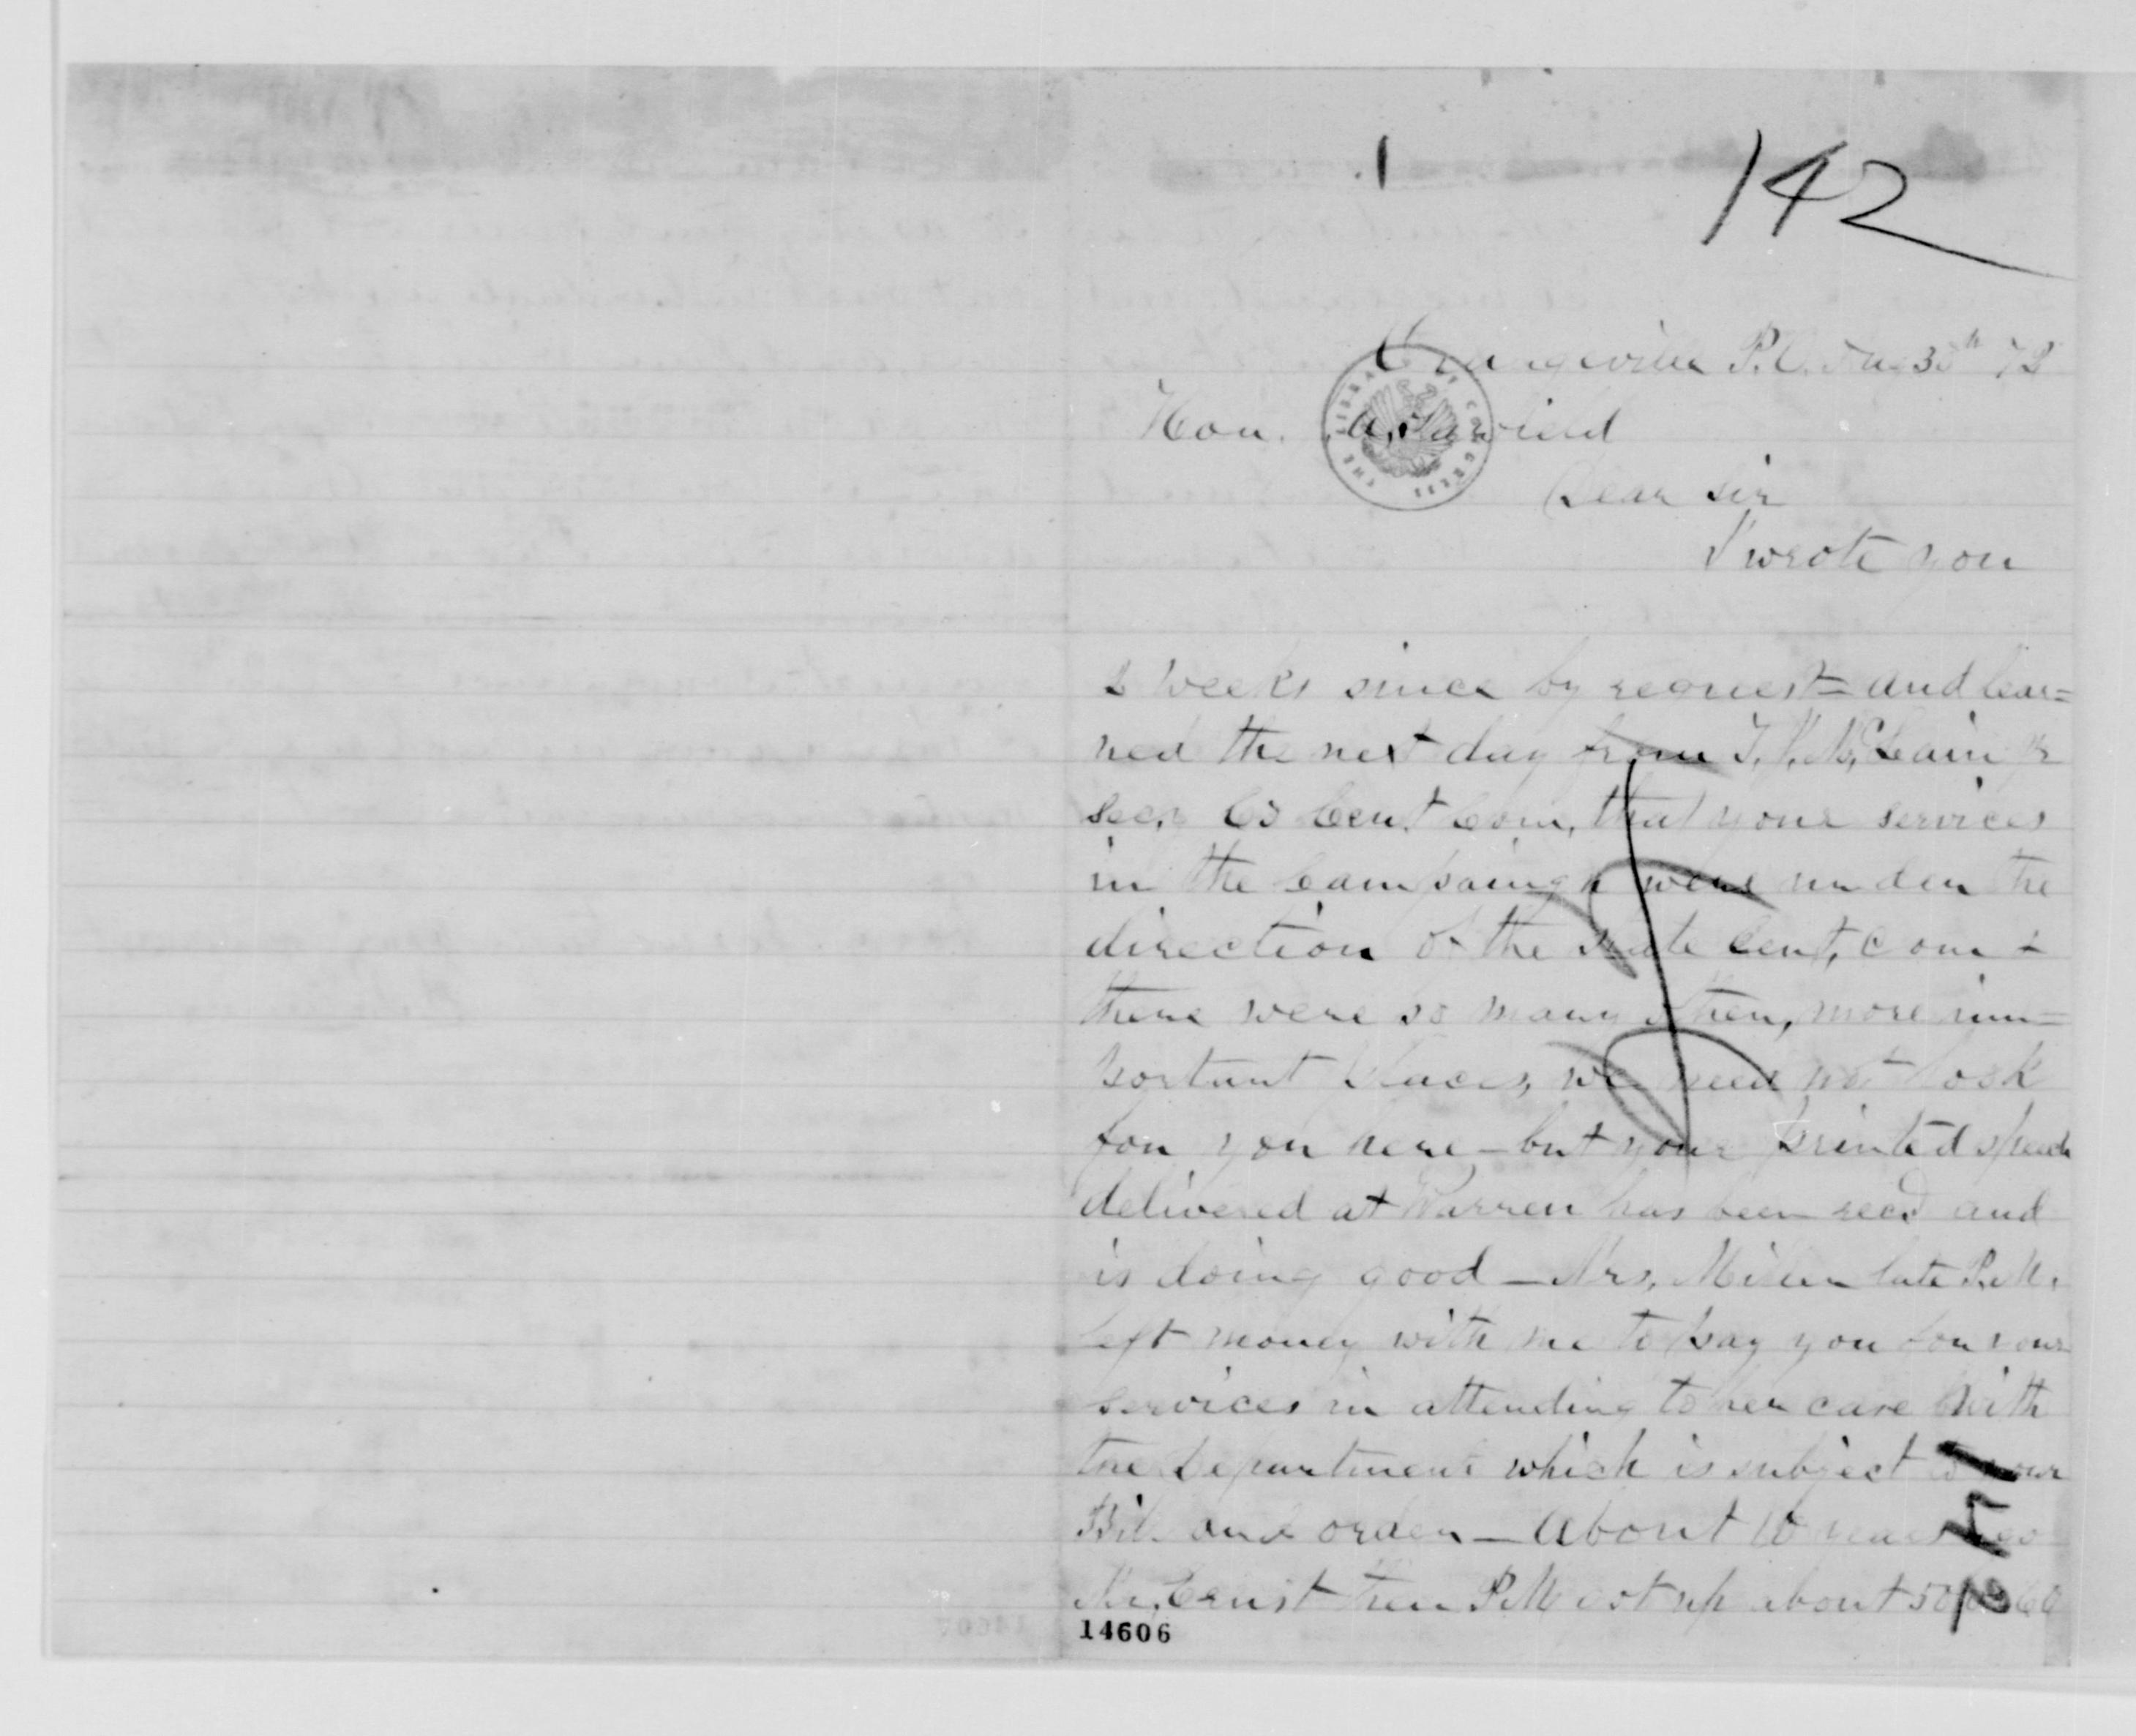 1
142
Orangeville P.O. 30th 72
Hon. J. A. Garfield
Dear sir
I wrote you
2 weeks since by request = and lear=
ned the next day from T. J. McLain Jr
secy Co Cent Com, that your services
in the Campaingn were under the
direction of the State Cent, Com &
there were so many other, more im=
portant places, we need not look
for you here – but your printed speech
delivered at Warren has been recd and
is doing good – Mrs. late P.M.
left money with me to pay you for your
services in attending to her case with
the Department which is subject to your
Bill and order – About 10 years ago
Mr. Ernst then P.M got up about 50 60
14606
THE LIBRARY OF CONGRESS